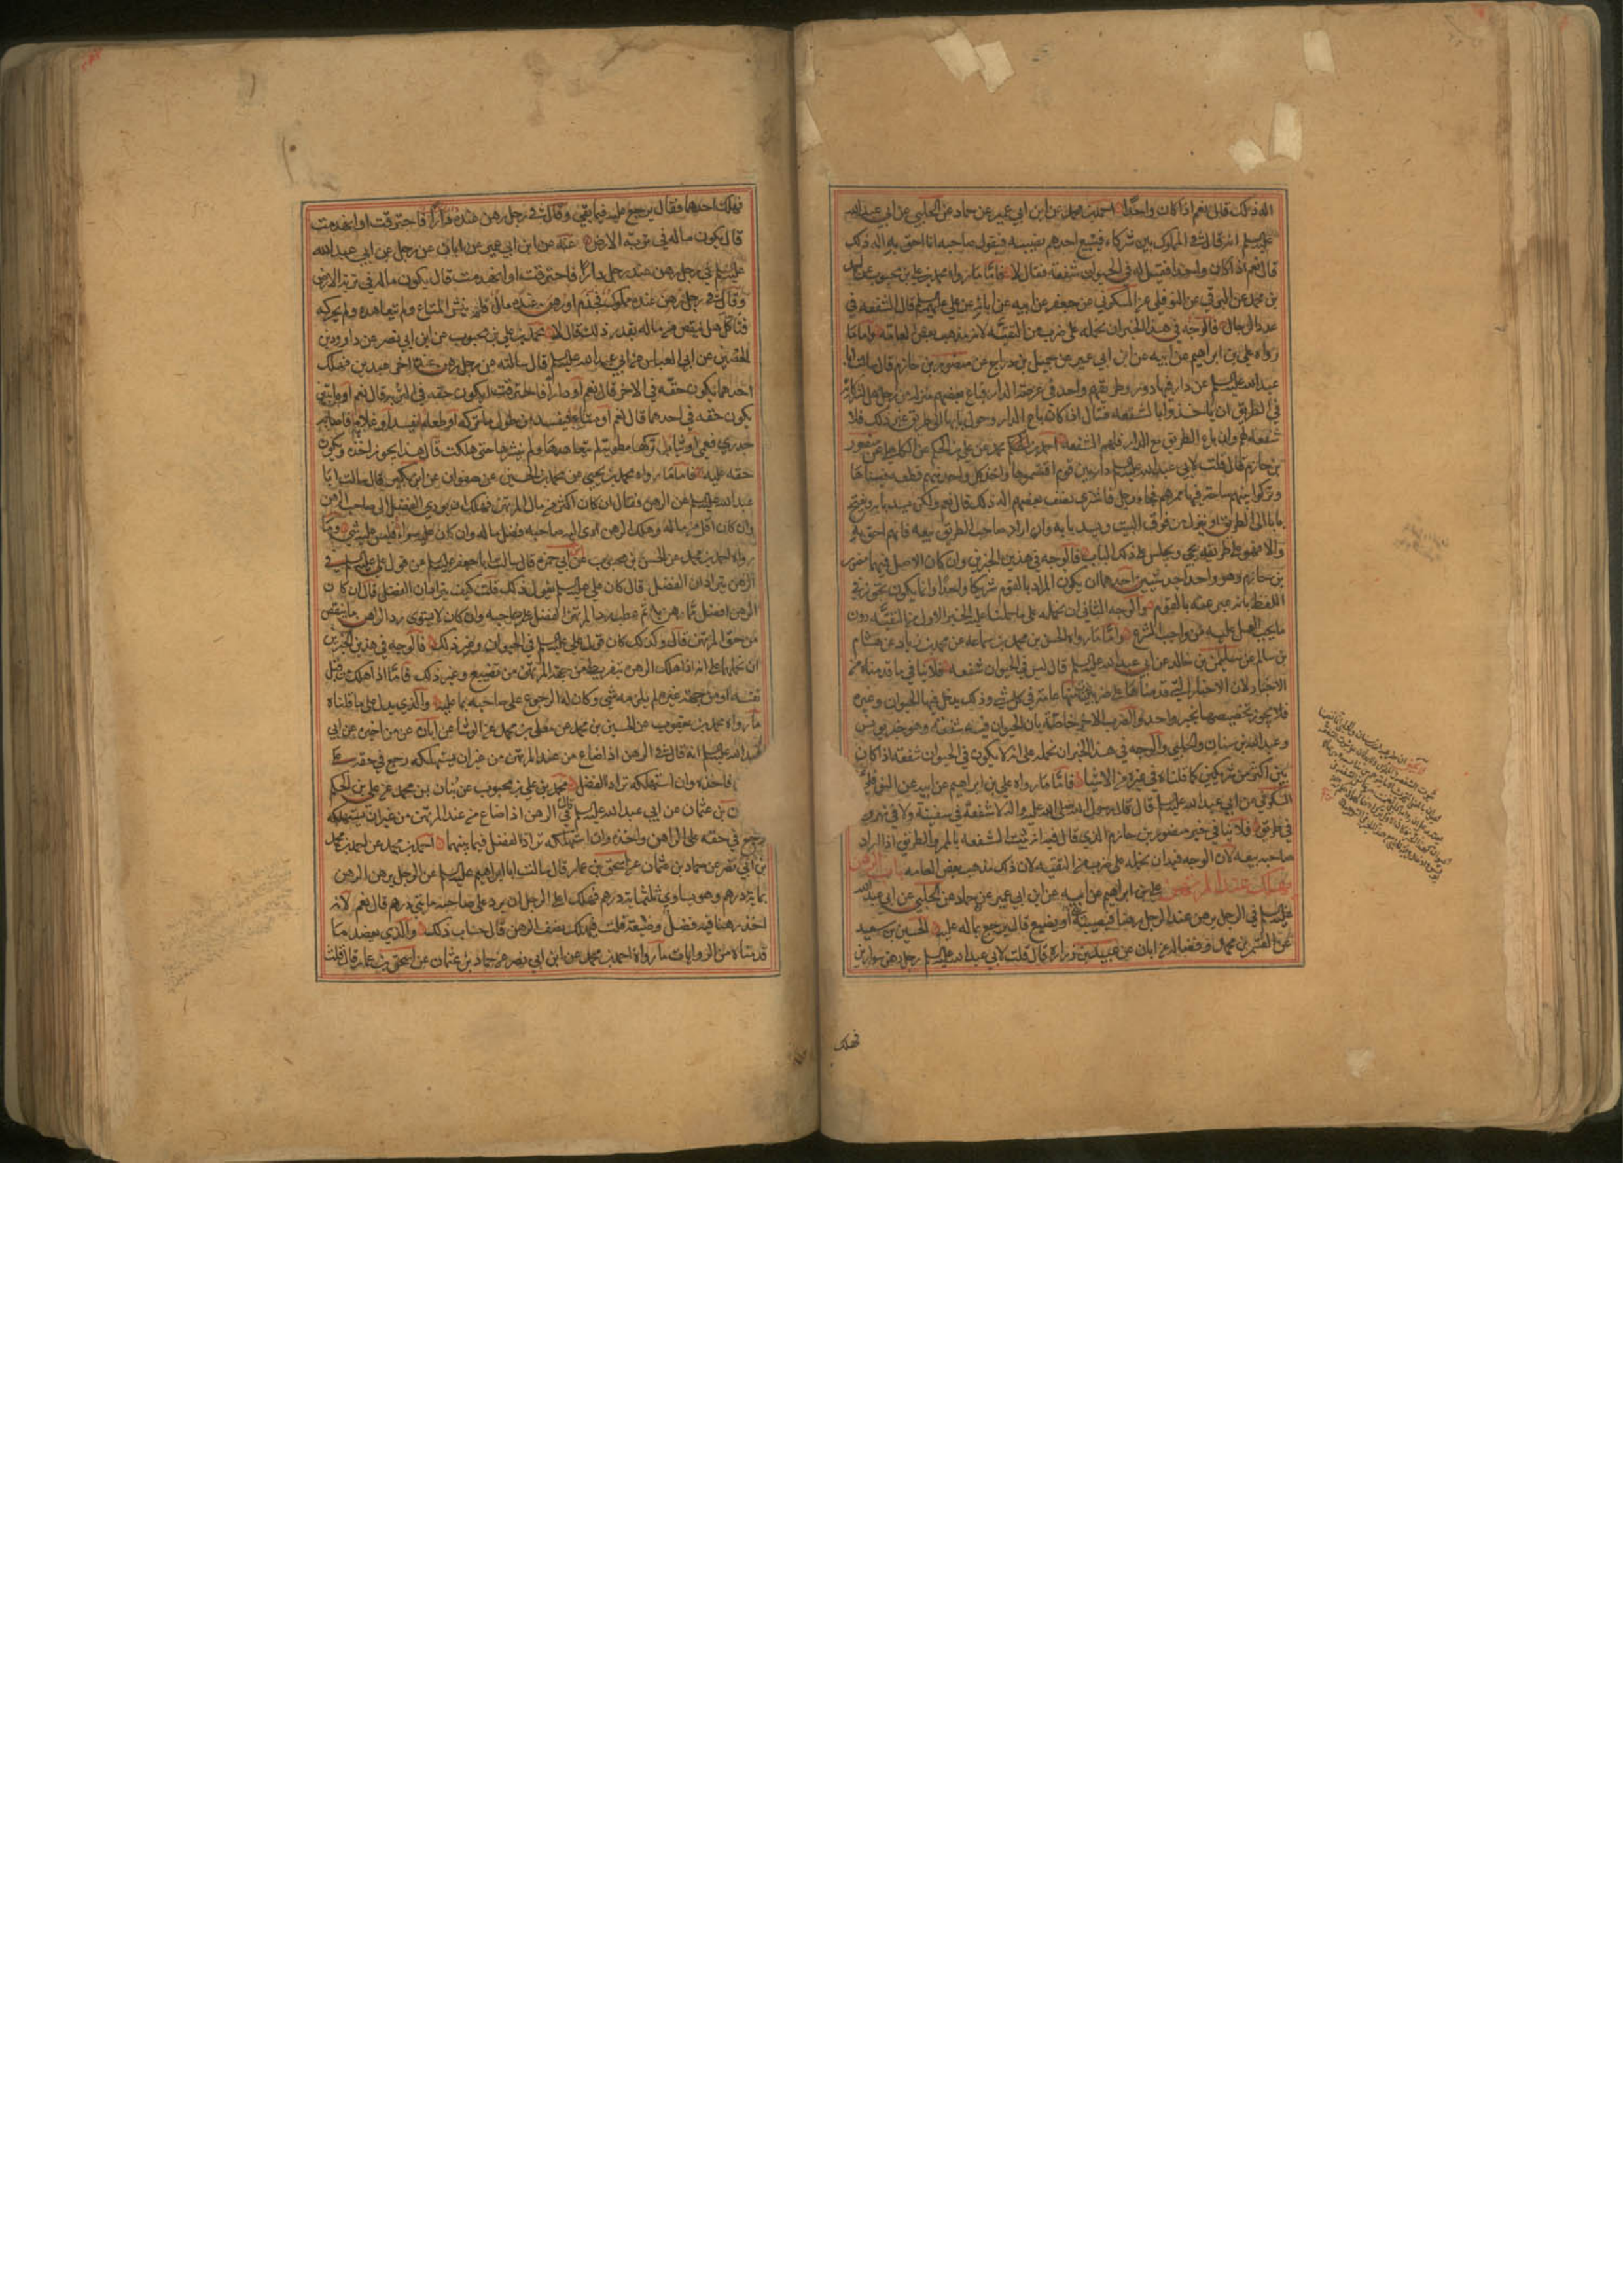 اله ذلك قال نعم اذا كان واحدا احمد بن محمد عن ابن ابي عمير عن حماد عن الحلبي عن ابي عبد الله
عليه السلم انه قال في المملوك بين شركاء فيبيع احدهم نصيبه فيقول صاحبه انا احق به اله ذلك
قال نعم اذا كان واحدا فقيل له في الحيوان شفعة فقال لا فاما ما رواه محمد بن علي بن محبوب عن احمد
بن محمد عن البرقي عن النوفلي عن السكوني عن جعفر عن ابيه عن ابائه عن علي عليهم السلم قال الشفعة في
عدد الرجال فالوجه في هذا الخبر ان نحمله على ضرب من التقية لانه مذهب بعض العامة واما ما
رواه علي بن ابراهيم عن ابيه عن ابن ابي عمير عن جميل بن دراج عن منصور بن حازم قال سالت ابا
عبد الله عليه السلم عن دار فيها دور وطريقهم واحد في عرصة الدار فباع بعضهم منزله من رجل هل لشركائه
في الطريق ان ياخذوا بالشفعة فقال ان كان باع الدار وحول بابها الى طريق غير ذلك فلا
شفعة لهم وان باع الطريق مع الدار فلهم الشفعة احمد بن محمد عن علي بن الحكم عن الكاهلي عن منصور
بن حازم قال قلت لابي عبد الله عليه السلم دار بين قوم اقتسموها واخذ كل واحد منهم قطعة فبناها
وتركوا بينهم ساحة فيها ممرهم فجاء رجل فاشترى نصيب بعضهم اله ذلك قال نعم ولكن يسد بابه ويفتح
بابا الى الطريق او ينزل من فوق البيت ويسد بابه وان اراد صاحب الطريق بيعه فانهم احق به
والا فهو طريقه يجي ويجلس على ذلك الباب فالوجه في هذين الخبرين وان كان الاصل فيهما منصور
بن حازم وهو واحد احد شيئين احدهما ان يكون المراد بالقوم شريكا واحدا وانما يكون تجوز في
اللفظ بانه عبر عنه بالقوم والوجه الثاني ان نحمله على ما حملنا عليه الخبر الاول من التقية دون
ما يجب العمل عليه من واجب الشرع واما ما رواه الحسن بن محمد بن سماعة عن محمد بن زياد عن هشام
بن سالم عن سليمن بن خالد عن ابي عبد الله عليه السلم قال ليس في الحيوان شفعة فلا ينافي ما قدمناه من
الاخبار لان الاخبار التي قدمناها على ضربين منها عامة في كل شي وذلك يدخل فيها الحيوان وغيره
فلا يجوز تخصيصها بخبر واحد والضرب الاخر خاصة بان الحيوان فيه شفعة وهو خبر يونس
وعبد الله بن سنان والحلبي والوجه في هذا الخبر ان نحمله على انه لا يكون في الحيوان شفعة اذا كان
بين اكثر من شريكين كما قلناه في غيره من الاشياء فاما ما رواه علي بن ابراهيم عن ابيه عن النوفلي
السكوني عن ابي عبد الله عليه السلم قال قال رسول الله صلى الله عليه واله لا شفعة في سفينة ولا في نهر و
في طريق فلا ينافي خبر منصور بن حازم الذي قال فيه انه تثبت الشفعة بالممر والطريق اذا اراد
صاحبه بيعه لان الوجه فيه ان نحمله على ضرب من التقية لان ذلك مذهب بعض العامة باب الرهن
يهلك عند المرتهن علي بن ابراهيم عن ابيه عن ابن ابي عمير عن حماد عن الحلبي عن ابي عبد الله
عليه السلم في الرجل يرهن عند الرجل رهنا فيصيبه شي او يضيع قال يرجع بماله عليه الحسين بن سعيد
عن القسم بن محمد او فضالة عن ابان عن عبيد بن زرارة قال قلت لابي عبد الله عليه السلم رجل رهن سوارين
فهلك
فهلك احدهما فقال يرجع عليه فيما بقي وقال في رجل رهن عنده دارا فاحترقت او انهدمت
قال يكون ماله في تربة الارض عنه عن ابن ابي عمير عن ابان عن رجل عن ابي عبد الله
عليه السلم في رجل رهن عند رجل دارا فاحترقت او انهدمت قال يكون ماله في تربة الارض
وقال في رجل رهن عنده مملوك فجذم او رهن عنده مال فلم ينشر المتاع ولم يتعاهده ولم يحركه
فتاكل هل ينقص من ماله بقدر ذلك قال لا محمد بن علي بن محبوب عن ابن ابي نصر عن داود بن
الحصين عن ابي العباس عن ابي عبد الله عليه السلم قال سالته عن رجل رهن عند اخر عبدين فهلك
احدهما يكون حقه في الاخر قال نعم او دارا فاحترقت ايكون حقه في التربة قال نعم او دابتين
يكون حقه في احدهما قال نعم او متاعا فيفسد من طول ما تركه او طعاما يفسد او غلاما فاصابه
جدري فعمي او ثيابا تركها مطوية لم يتعاهدها ولم ينشرها حتى هلكت قال هذا يجوز اخذه ويكون
حقه عليه فاما ما رواه محمد بن يحيى عن محمد بن الحسين عن صفوان عن ابن بكير قال سالت ابا
عبد الله عليه السلم عن الرهن فقال ان كان اكثر من مال المرتهن فهلك ان يودي الفضل الى صاحب الرهن
وان كان اقل من ماله وهلك الرهن ادى اليه صاحبه فضل ماله وان كان سواء فليس عليه شي وما
رواه احمد بن محمد عن الحسن بن محبوب عن ابي حمزة قال سالت ابا جعفر عليه السلم عن قول علي عليه السلم في
الرهن يترادان الفضل قال كان علي عليه السلم يقول ذلك قلت كيف يترادان الفضل قال ان كان
الرهن افضل مما رهن به ثم عطب رد المرتهن الفضل على صاحبه وان كان لا يسوى رد الراهن ما ينقص
من حق المرتهن قال وكذلك كان قول علي عليه السلم في الحيوان وغير ذلك فالوجه في هذين الخبرين
ان نحملهما على انه اذا هلك الرهن بتفريط من جهة المرتهن من تضييع وغير ذلك فاما اذا هلك من قبل
نفسه او من جهة غيره لم يلزمه شي وكان له الرجوع على صاحبه بما عليه والذي يدل على ما قلناه
ما رواه محمد بن يعقوب عن الحسين بن محمد عن معلى بن محمد عن الوشا عن ابان عن من اخبره عن ابي
عبد الله عليه السلم انه قال في الرهن اذا ضاع من عند المرتهن من غير ان يستهلكه رجع في حقه على
فاخذه وان استهلكه تراد الفضل محمد بن علي بن محبوب عن بنان بن محمد عن علي بن الحكم
ن بن عثمان عن ابي عبد الله عليه السلم قال في الرهن اذا ضاع من عند المرتهن من غير ان يستهلكه
رجع في حقه على الراهن واخذه وان استهلكه ترادا الفضل فيما بينهما احمد بن محمد عن احمد بن محمد
بن ابي نصر عن حماد بن عثمان عن اسحق بن عمار قال سالت ابا ابراهيم عليه السلم عن الرجل يرهن الرهن
بماية درهم وهو يساوي ثلثماية درهم فهلك اعلى الرجل ان يرد على صاحبه مايتي درهم قال نعم لانه
اخذ رهنا فيه فضل وضيعه قلت فهلك نصف الرهن قال حساب ذلك والذي يعضد ما
قدمناه من الروايات ما رواه احمد بن محمد عن ابن ابي نصر عن حماد بن عثمان عن اسحق بن عمار قال قلت